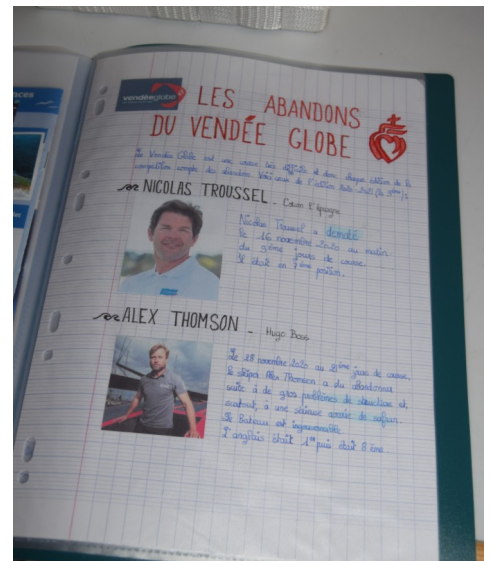 nces
vendéeglobe
LES ABANDONS
DU VENDÉE GLOBE
Le Vendée Globe est une course très difficile et donc chaque édition de la
compétition compte des abandons. Voici ceux de l'édition 2020-2021 (la 9ème):
NICOLAS TROUSSEL - Corum L'épargne
Nicolas Troussel a démâté
le 16 novembre 2020 au matin
du 9ème jours de course.
Il était en 7ème position.
ALEX THOMSON - Hugo Boss
Le 28 novembre 2020 au jour de course,
le skiper Alex Thomson a du abandonner
suite à de gros problèmes de structure et,
surtout, à une sérieuse avarie de safran.
Le Bateau est ingouvernable.
L'anglais était 1er puis était 8ème